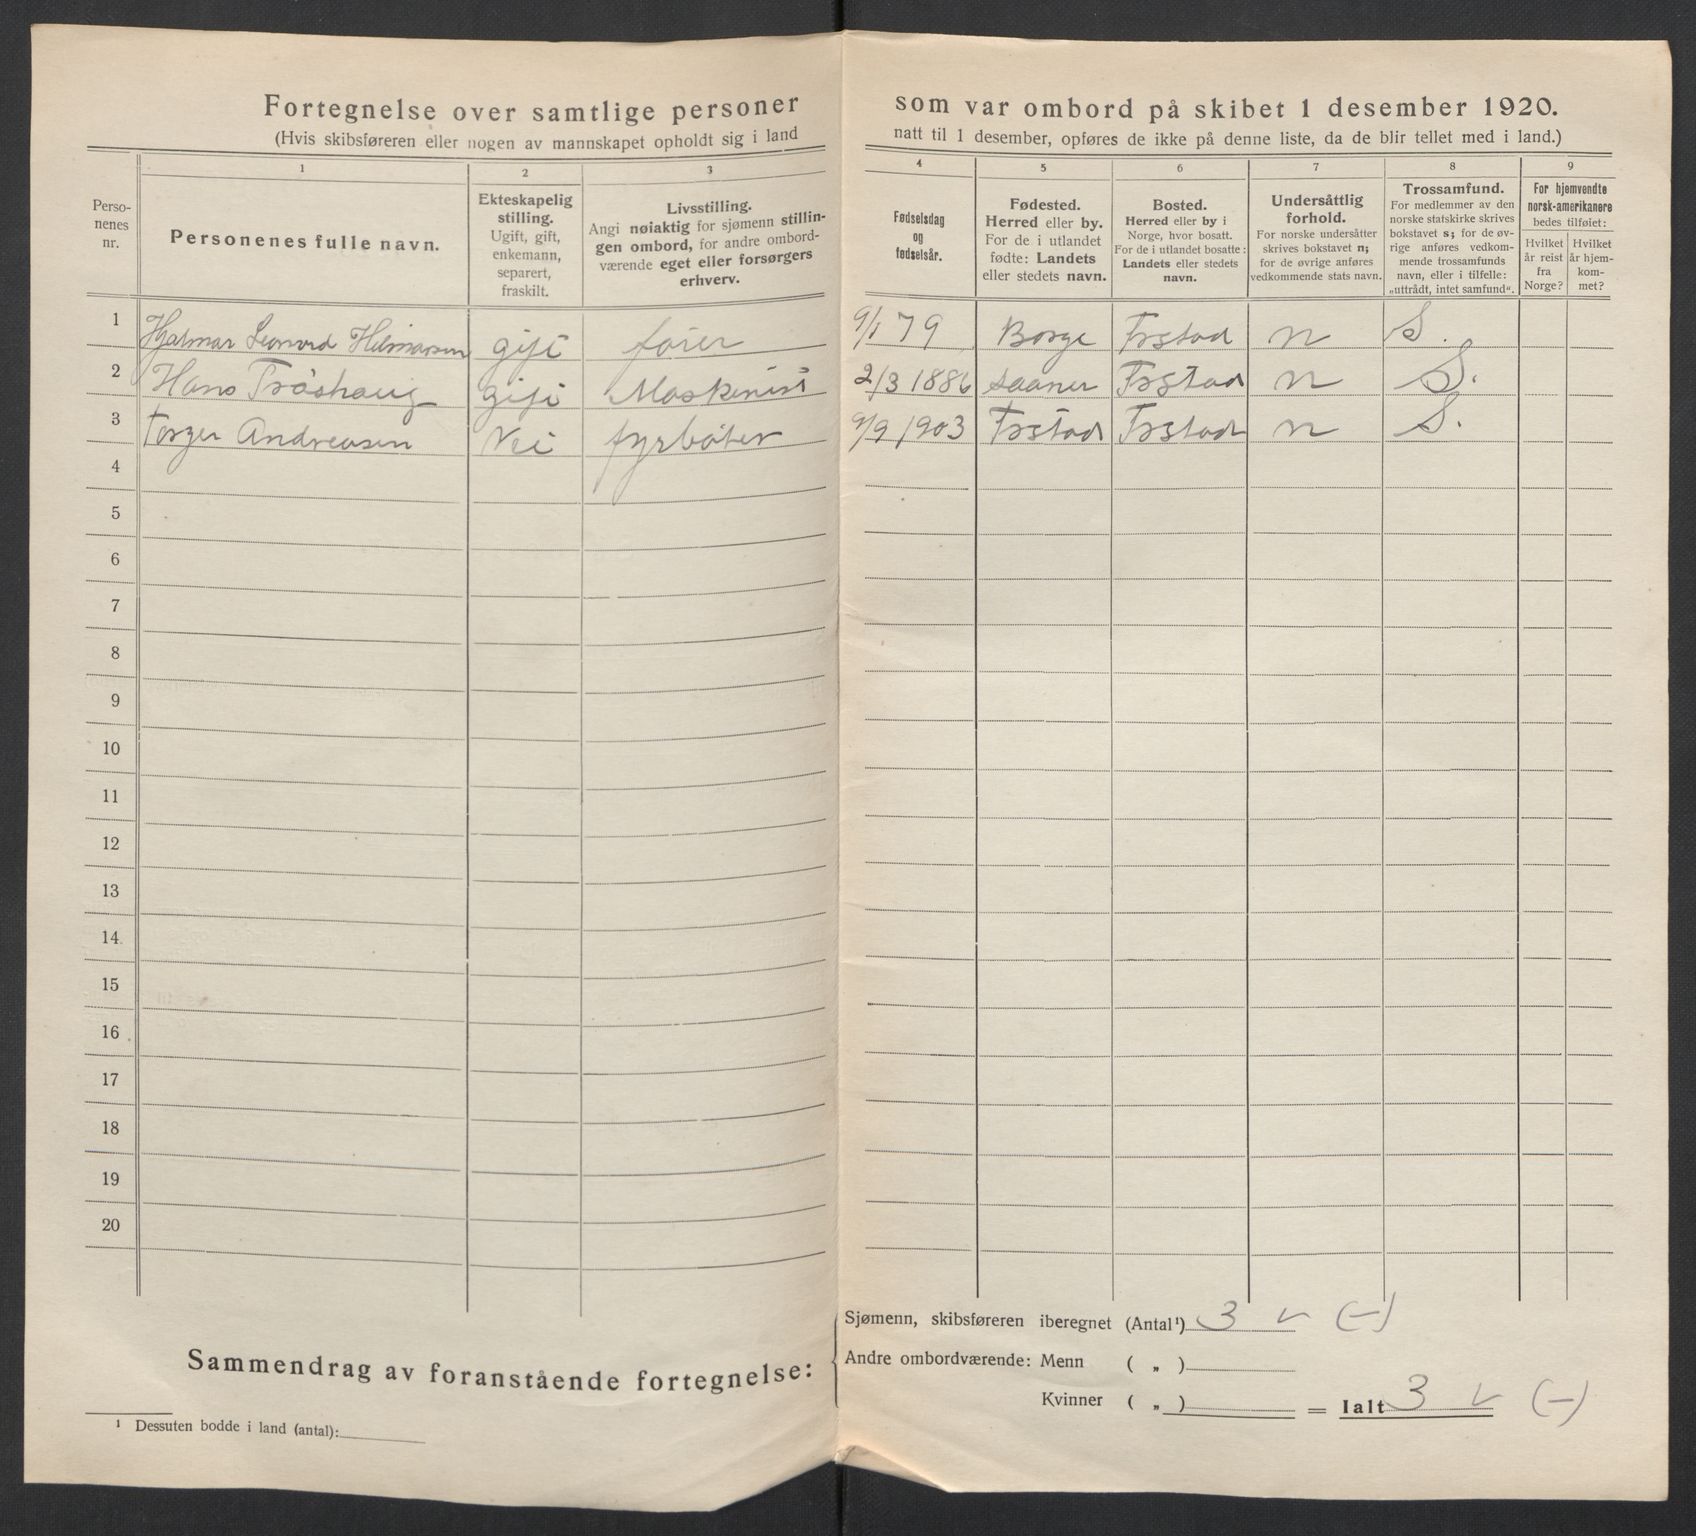 Fortegnelse over samtlige personer som var ombord på skibet 1 desember 1920.
(Hvis skibsføreren eller nogen av mannskapet opholdt sig i land natt til 1 desember, opføres de ikke på denne liste, da de blir tellet med i land.)
Personenes nr.
1
Personenes fulle navn.
2
Ekteskapelig
stilling.
Ugift, gift,
enkemann,
separert,
fraskilt.
3
Livsstilling.
Angi nøiaktig for sjømenn stillin-
gen ombord, for andre ombord-
værende eget eller forsørgers
erhverv.
4
Fødselsdag
og
fødselsår.
5
Fødested.
Herred eller by.
For de i utlandet
fødte: Landets
eller stedets navn.
6
Bosted.
Herred eller by i
Norge, hvor bosatt.
For de i utlandet bosatte:
Landets eller stedets
navn.
7
Undersåttlig
forhold.
For norske undersåtter
skrives bokstavet n;
for de øvrige anføres
vedkommende stats navn.
8
Trossamfund.
For medlemmer av den
norske statskirke skrives
bokstavet s; for de øv-
rige anføres vedkom-
mende trossamfunds
navn, eller i tilfelle:
„uttrådt, intet samfund“.
9
For hjemvendte
norsk-amerikanere
bedes tilføiet:
Hvilket
år reist
fra
Norge?
Hvilket
år hjem-
kom-
met?
1 Hjalmar Leonard Hilmarsen gift fører 9/1 79 Borge Frstad n S.
2 Hans Tråshaug gift Maskinist 2/3 1886 Saaner Frstad n S.
3 Torger Andreasen Nei fyrbøter 9/9 1903 Frstad Frstad n S.
4
5
6
7
8
9
10
11
12
13
14
15
16
17
18
19
20
Sammendrag av foranstående fortegnelse:
Sjømenn, skibsføreren iberegnet (Antal¹) 3 v (-)
Andre ombordværende: Menn ( „ )
Kvinner ( „ ) = Ialt 3 v (-)
¹ Dessuten bodde i land (antal):